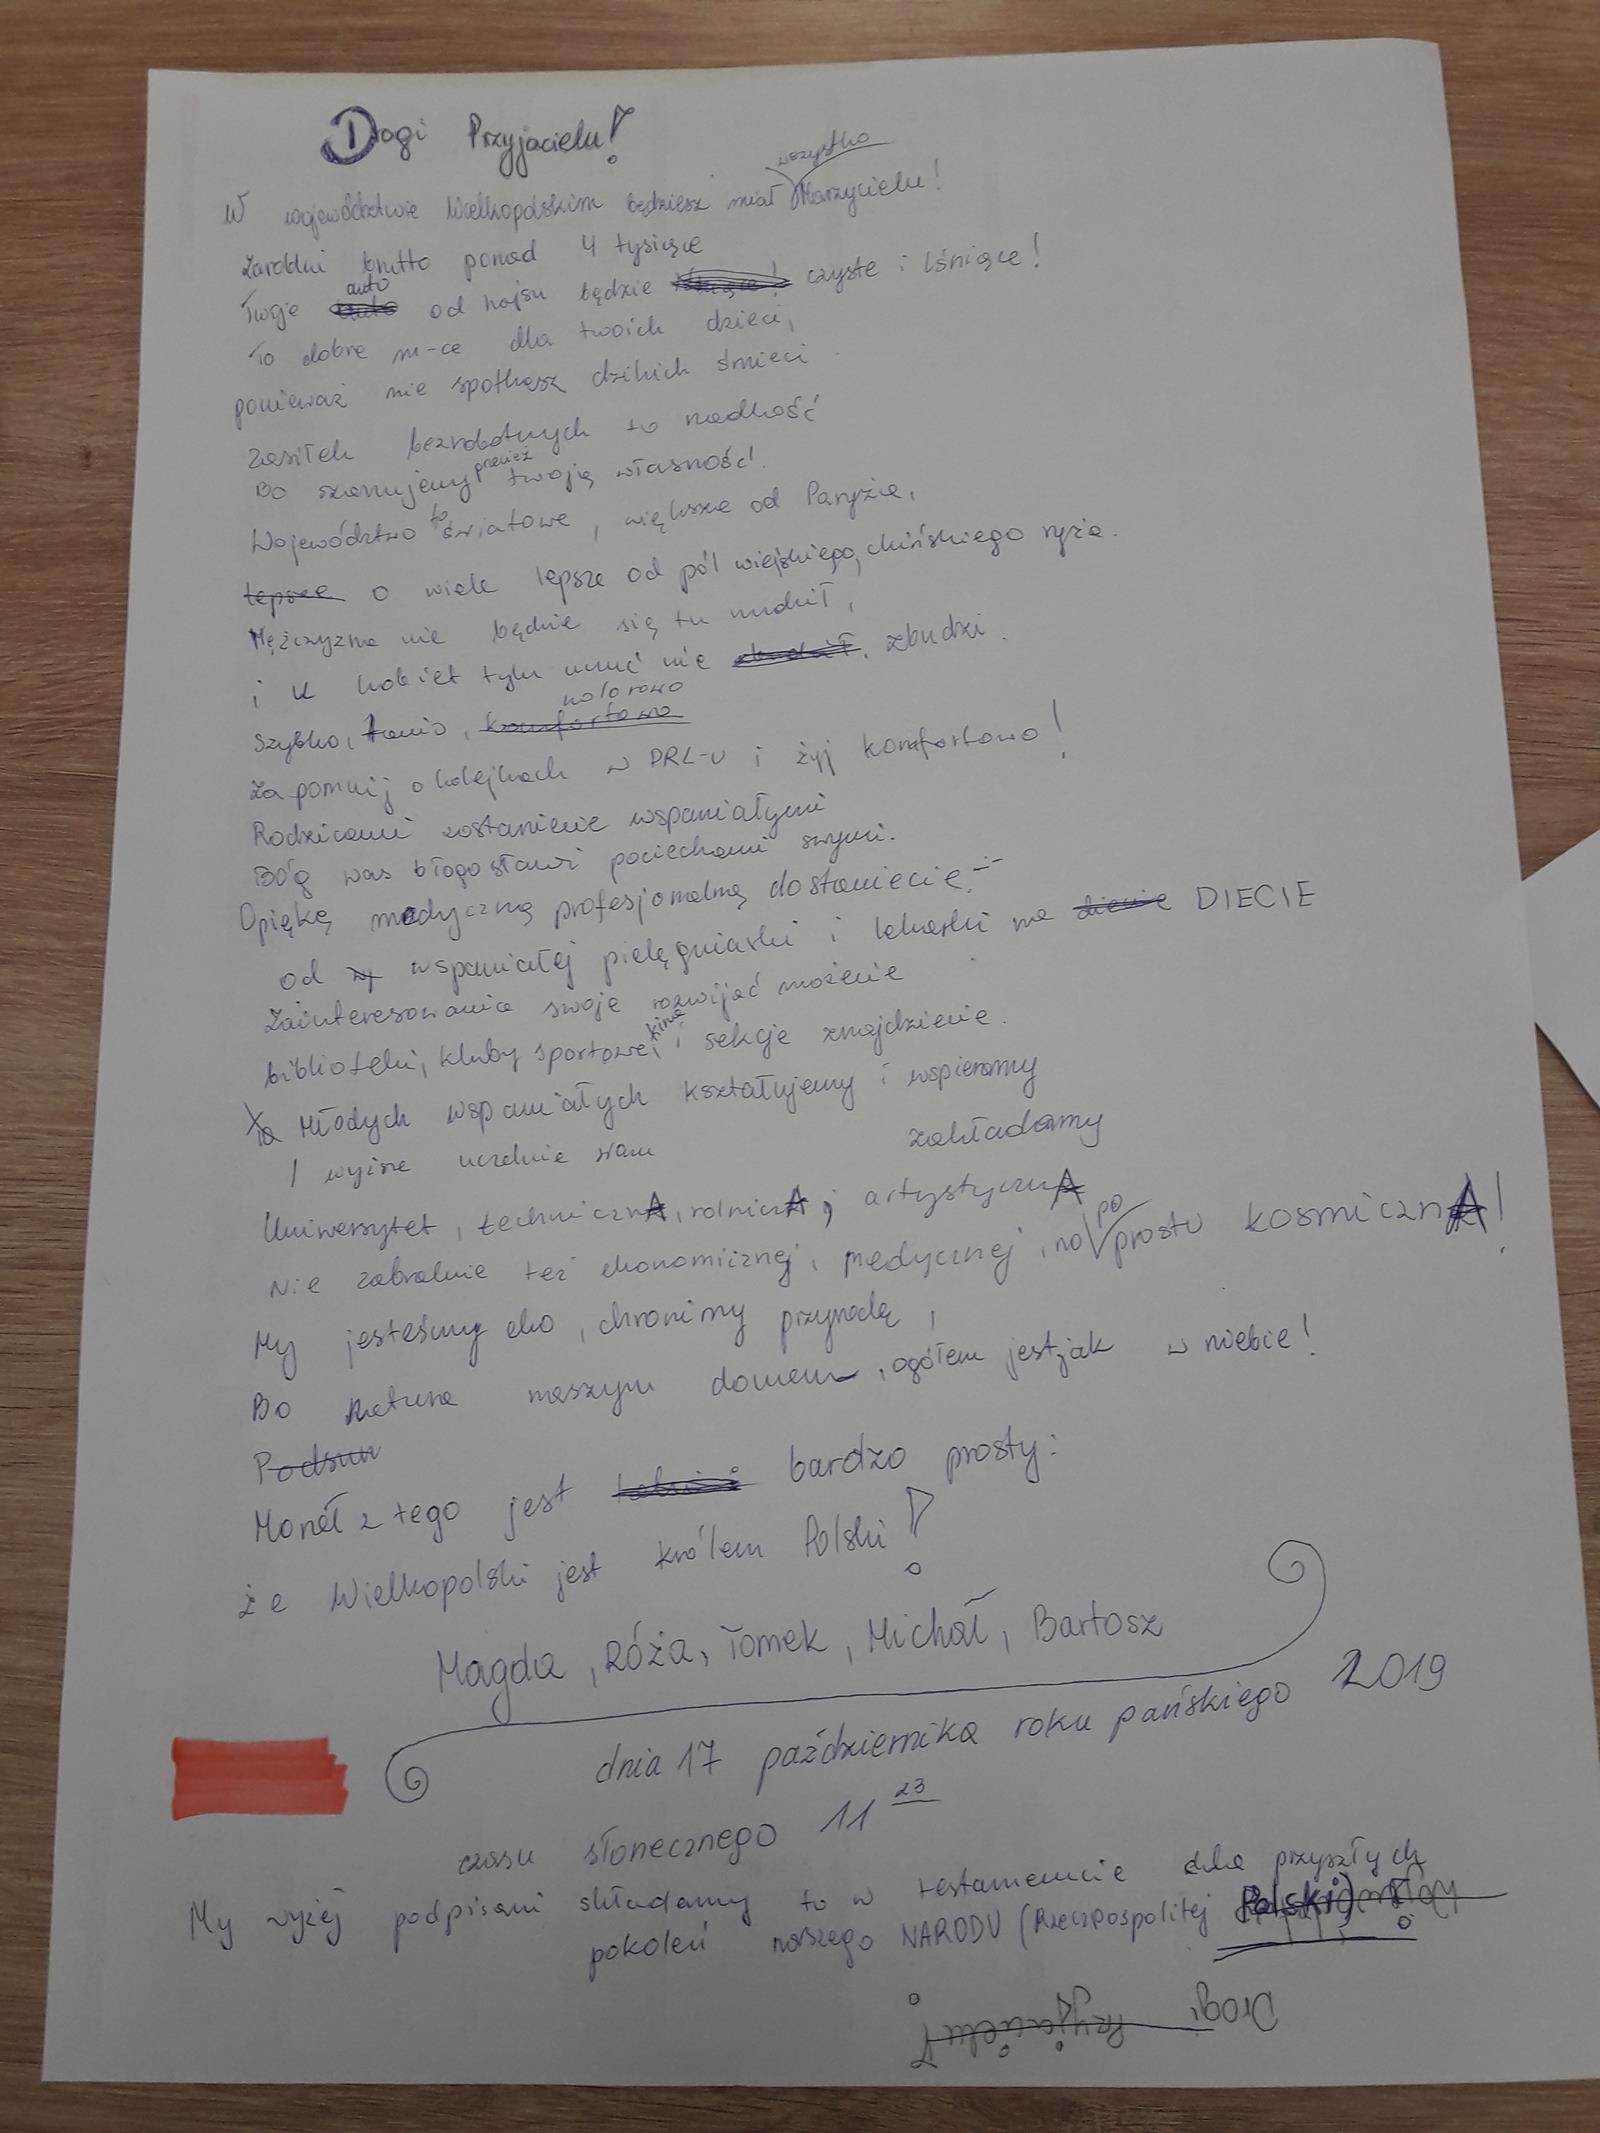 Drogi Przyjacielu!
W województwie Wielkopolskim będziesz miał wszystko Marzycielu!
Zarobki brutto ponad 4 tysiące
Twoje auto od hajsu będzie czyste i lśniące!
To dobre m-ce dla twoich dzieci,
ponieważ nie spotkasz dzikich śmieci
Zasiłek bezrobotnych to rzadkość
Bo szanujemy przecież twoją własność!
Województwo to światowe, większe od Paryża,
lepsze o wiele lepsze od pól wiejskiego, chińskiego ryżu.
Mężczyzna nie będzie się tu nudził,
i u kobiet tylu uczuć nie zbudzi.
Szybko, tanio, komfortowo kolorowo
Zapomnij o kolejkach w PRL-u i żyj komfortowo!
Rodzicami zostaniecie wspaniałymi
Bóg was błogosławi pociechami swymi.
Opiękę medyczną profesjonalną dostaniecie
od wspaniałej pielęgniarki i lekarki na diecie DIECIE
Zainteresowania swoje rozwijać możecie
biblioteki, kluby sportowe, kina i sekcje znajdziecie.
Młodych wspaniałych kształujemy i wspieramy
I wyższe uczelnie wam zakładamy
Uniwersytet, technicznA, rolniczA, artystycznA
Nie zabraknie też ekonomicznej, medycznej, no po prostu kosmicznA!
My jesteśmy eko, chronimy przyrodę,
Bo natura naszym domem, ogółem jest jak w niebie!
Podsum
Morał z tego jest bardzo prosty:
że Wielkopolski jest królem Polski!
Magda, Róża, Tomek, Michał, Bartosz
dnia 17 października roku pańskiego 2019
czasu słonecznego 11 23
My wyżej podpisani składamy to w testamencie dla przyszłych
pokoleń naszego NARODU (Rzeczpospolitej Polski)!
Drogi Przyjacielu!